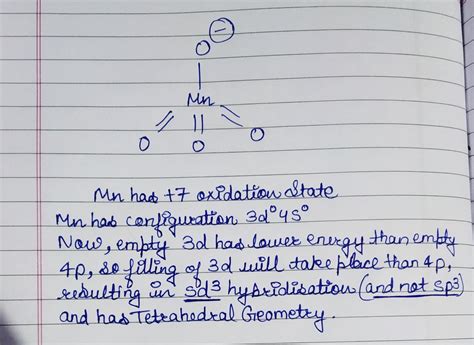 O ⊖
Mn
O O O
Mn has +7 oxidation state
Mn has configuration 3d⁰4s⁰
Now, empty 3d has lower energy than empty
4p, so filling of 3d will take place than 4p,
resulting in sd³ hybridisation (and not sp³)
and has Tetrahedral Geometry.